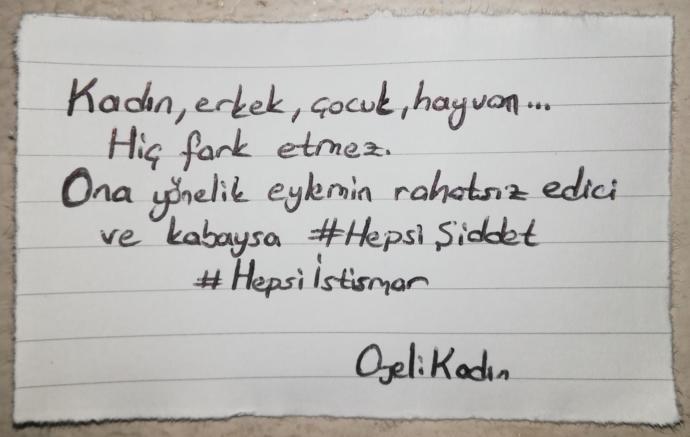 Kadın, erkek, çocuk, hayvan...
Hiç fark etmez.
Ona yönelik eylemin rahatsız edici
ve kabaysa #Hepsi Şiddet
#Hepsi İstismar
OjeliKadın